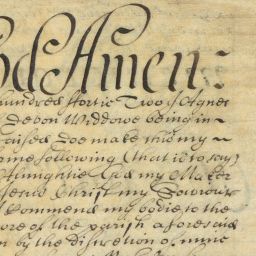 od Amen:
hundred Fortie Two I Agnes
Devon Widdowe being in
raised doe make this my
ome following (that is to say)
Almightie God my Maker
Jesus Christ my Saviour
I commend my bodie to the
ore of the parish aforesaid
n by the discretion of mine